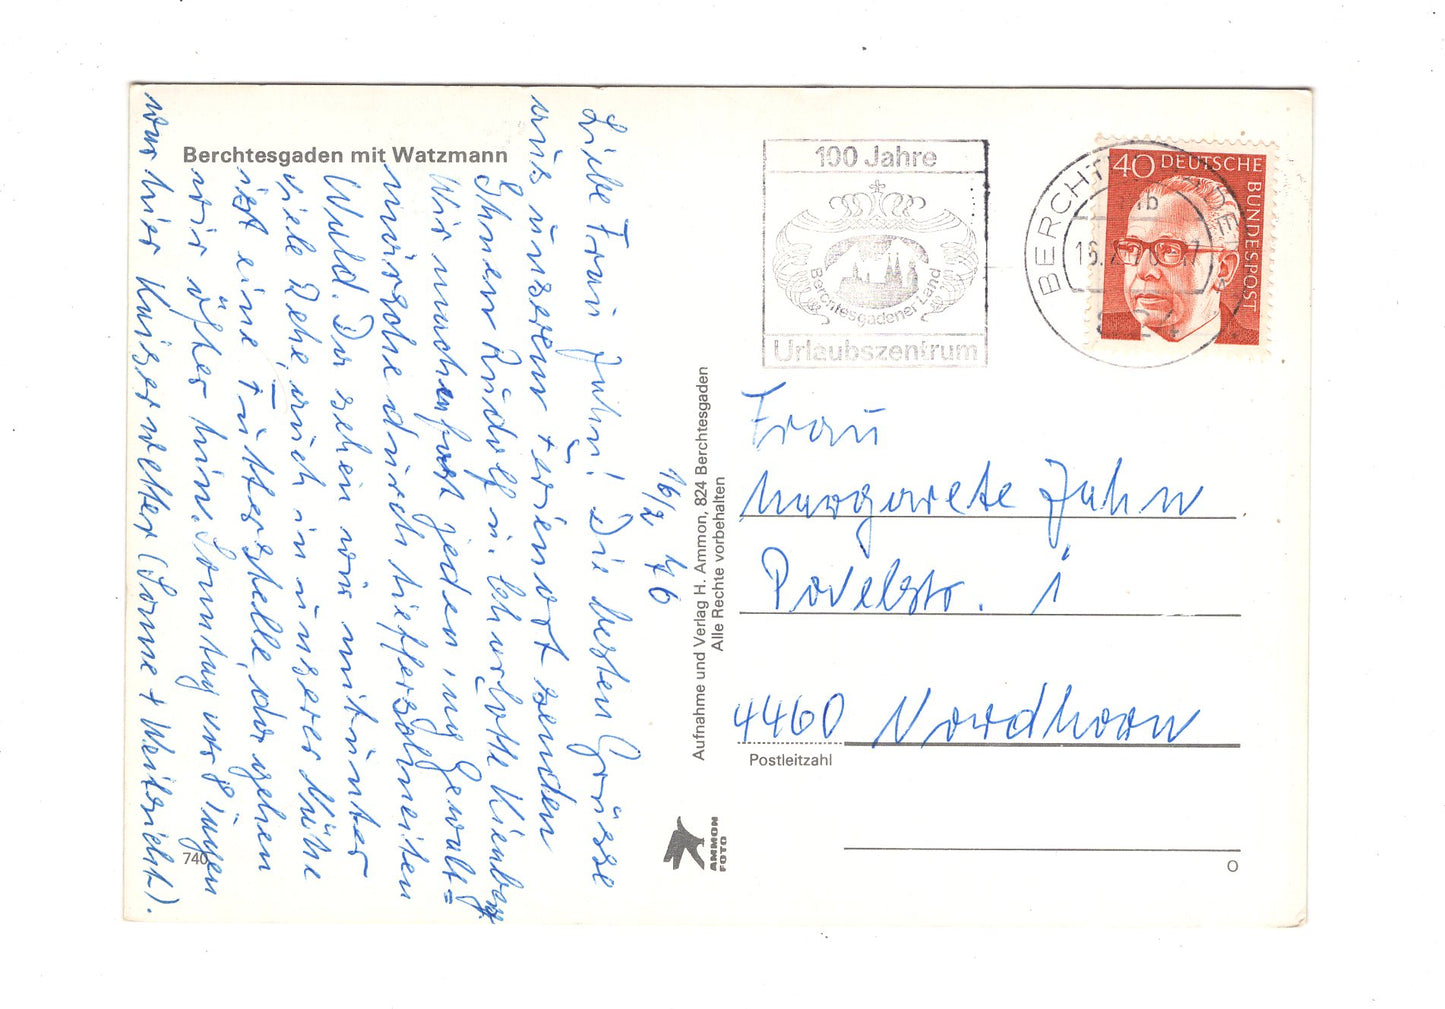 Berchtesgaden mit Watzmann
16/2 76
Liebe Frau Jahn! Die besten Grüsse
aus unserem Ferienort senden
Ihnen Rudolf u. Charlotte Kienberg
Wir machen fast jeden Tag Gewalt=
märsche durch tiefverschneiten
Wald. Da sehen wir mitunter
viele Rehe, auch in unserer Nähe
ist eine Futterstelle, da gehen
wir öfter hin. Sonntag vor 8 Tagen
war hier Kaiserwetter (Sonne + Weitsicht).
740
Aufnahme und Verlag H. Ammon, 824 Berchtesgaden
Alle Rechte vorbehalten
AMMON
FOTO
100 Jahre
Berchtesgadener Land
Urlaubszentrum
40 DEUTSCHE
BUNDESPOST
Frau
Margarete Jahn
Povelstr. 1
4460 Nordhorn
Postleitzahl
O